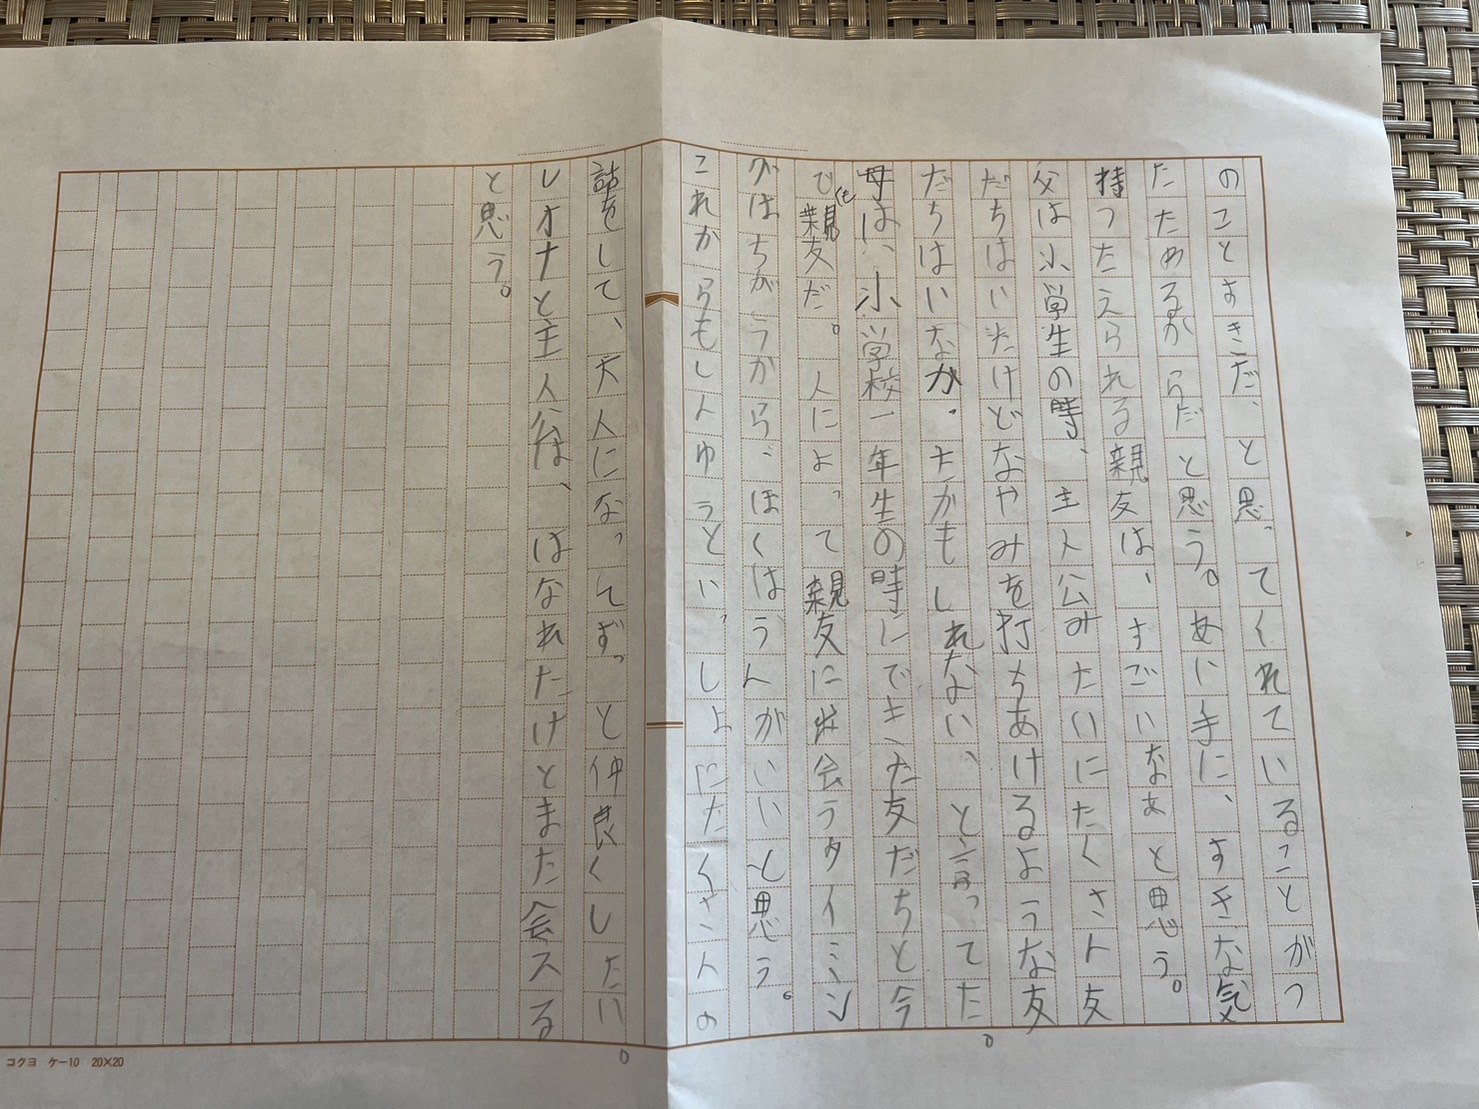 のことすきだ、と思ってくれていることがつ
たためるからだと思う。あい手に、すきな気
持つたえられる親友は、すごいなぁと思う。
父は小学生の時、主人公みたいにたくさト友
だちはいたけどなやみを打ちあけるような友
だちはいなか、たかもしれない、と言ってた。
母は、小学校一年生の時にできた友だちと今
で親友だ。人によって親友に出会うタイミン
も
グはちがうから、ほくはうんがいいと思う。
これからもしんゆうといっしょにたくさんの
話をして、大人になってずっと仲良くしたい。
レオナと主人公は、はなれたけとまた会スる
と思う。
コクヨ ケー10 20×20